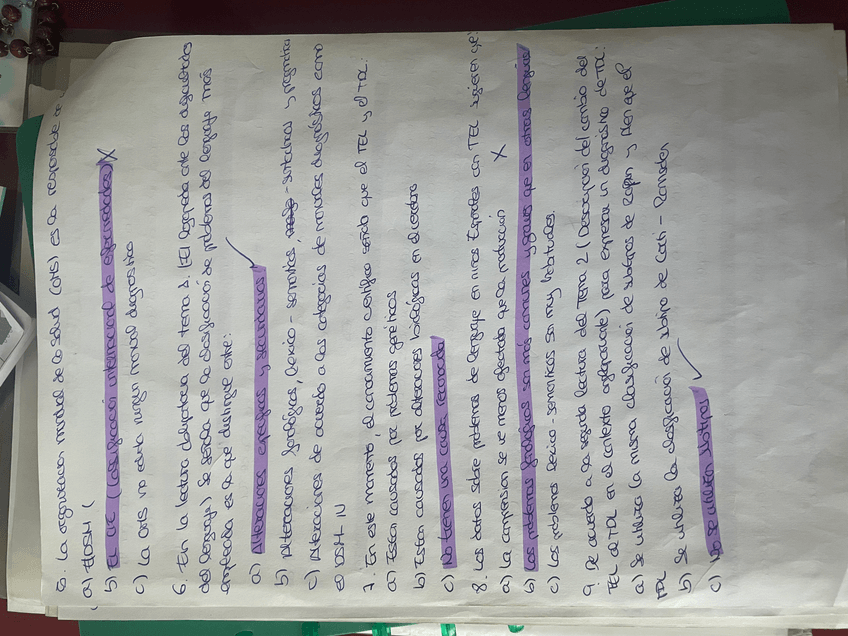 5. La organización mundial de la salud (OMS) es la responsable de
a) El DSM (
b) El CIE (Clasificación internacional de enfermedades) X
c) La OMS no edita ningún manual diagnóstico
6. En la lectura obligatoria del tema 1, (El logopeda ante las dificultades
del lenguaje) se señala que la clasificación de problemas del lenguaje más
empleada es la que distingue entre:
a) Alteraciones específicas y secundarias ✓
b) Alteraciones fonológicas, léxico-semánticas, - sintácticas y pragmática
c) Alteraciones de acuerdo a las categorías de manuales diagnósticos como
el DSM-IV
7. En este momento, el conocimiento científico señala que el TEL y el TDL:
a) Están causados por problemas genéticos
b) Están causados por alteraciones biológicas en el cerebro
c) No tienen una causa reconocida
8. Los datos sobre problemas de lenguaje en niños Españoles con TEL sugieren que:
a) La comprensión se ve menos afectada que la producción X
b) Los problemas fonológicos son más comunes y graves que en otras lenguas
c) Los problemas léxico-semánticos son muy habituales.
9. De acuerdo a la segunda lectura del Tema 2 (Descripción del cambio del
TEL al TDL en el contexto angloparlante) para expresar un diagnóstico de TDL:
a) Se utiliza la misma clasificación de subtipos de Rapin y Allen que el
TDL
b) Se utiliza la clasificación de subtipo de Conti-Ramsden
c) No se utilizan subtipos ✓